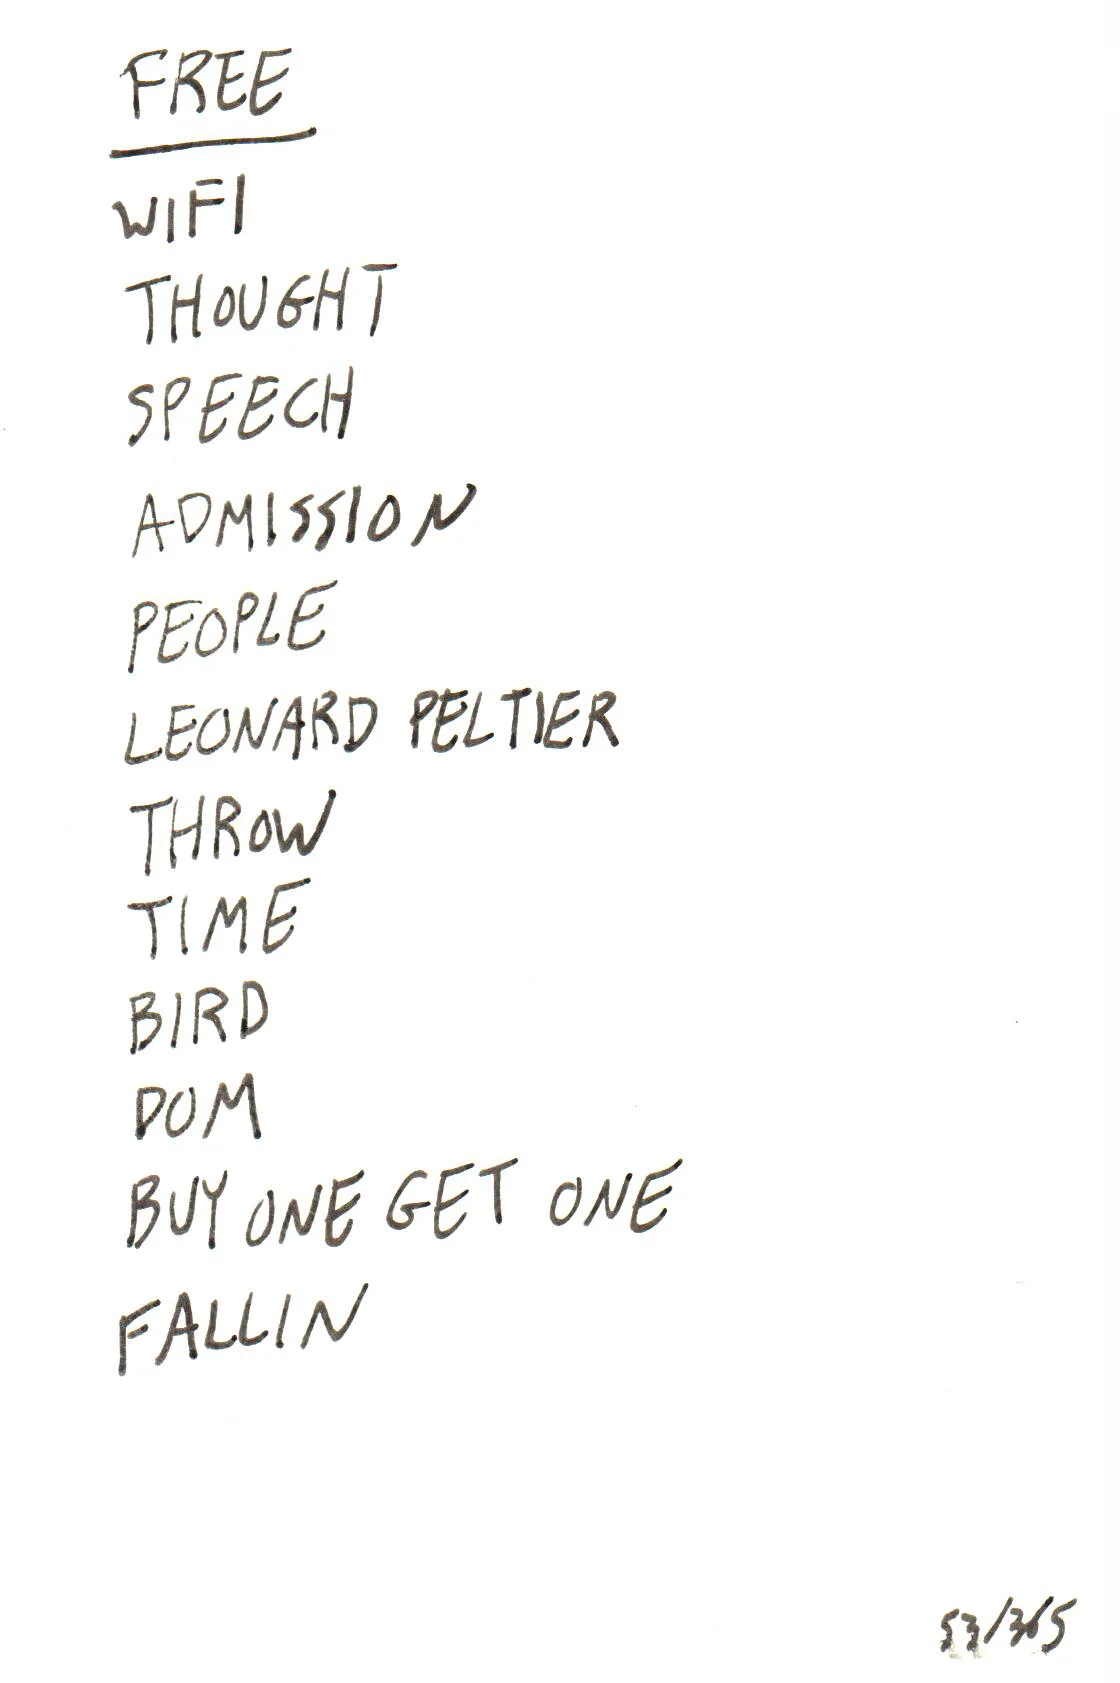 FREE
WIFI
THOUGHT
SPEECH
ADMISSION
PEOPLE
LEONARD PELTIER
THROW
TIME
BIRD
DOM
BUY ONE GET ONE
FALLIN
53/365